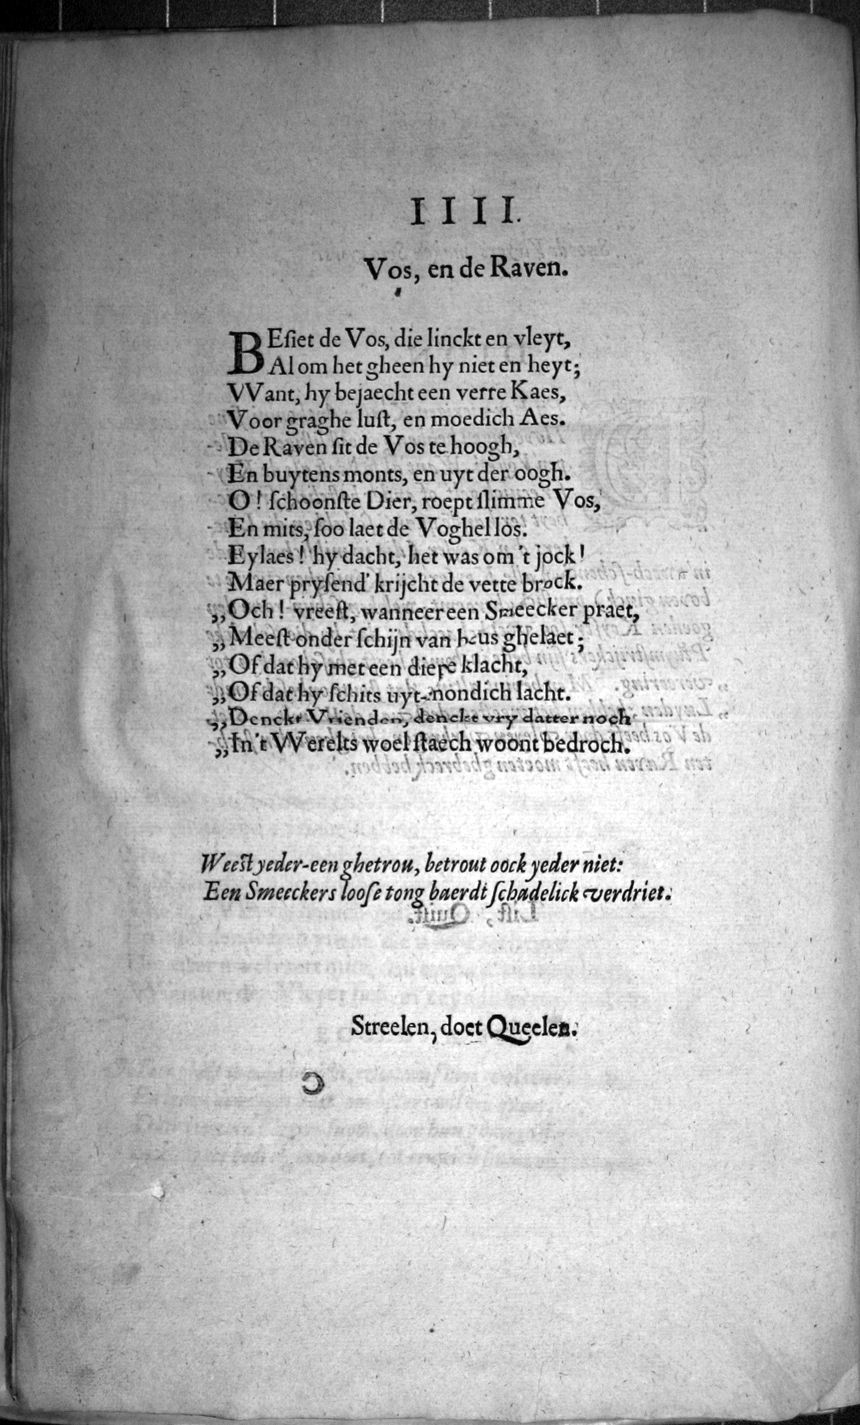 IIII.
Vos, en de Raven.
BEſiet de Vos, die linckt en vleyt,
Al om het gheen hy niet en heyt;
VVant, hy bejaecht een verre Kaes,
Voor graghe luſt, en moedich Aes.
De Raven ſit de Vos te hoogh,
En buytens monts, en uyt der oogh.
O! ſchoonſte Dier, roept ſlimme Vos,
En mits, ſoo laet de Voghel los.
Eylaes! hy dacht, het was om 't jock!
Maer pryſend' krijcht de vette brock.
,,Och! vreeſt, wanneer een Smeecker praet,
,,Meeſt onder ſchijn van heus ghelaet;
,,Of dat hy met een diepe klacht,
,,Of dat hy ſchits uyt-mondich lacht.
,,Denckt Vrienden, denckt vry datter noch
,,In't VVerelts woel ſtaech woont bedroch.
Weeſt yeder-een ghetrou, betrout oock yeder niet:
Een Smeeckers looſe tong baerdt ſchadelick verdriet.
Streelen, doet Queelen.